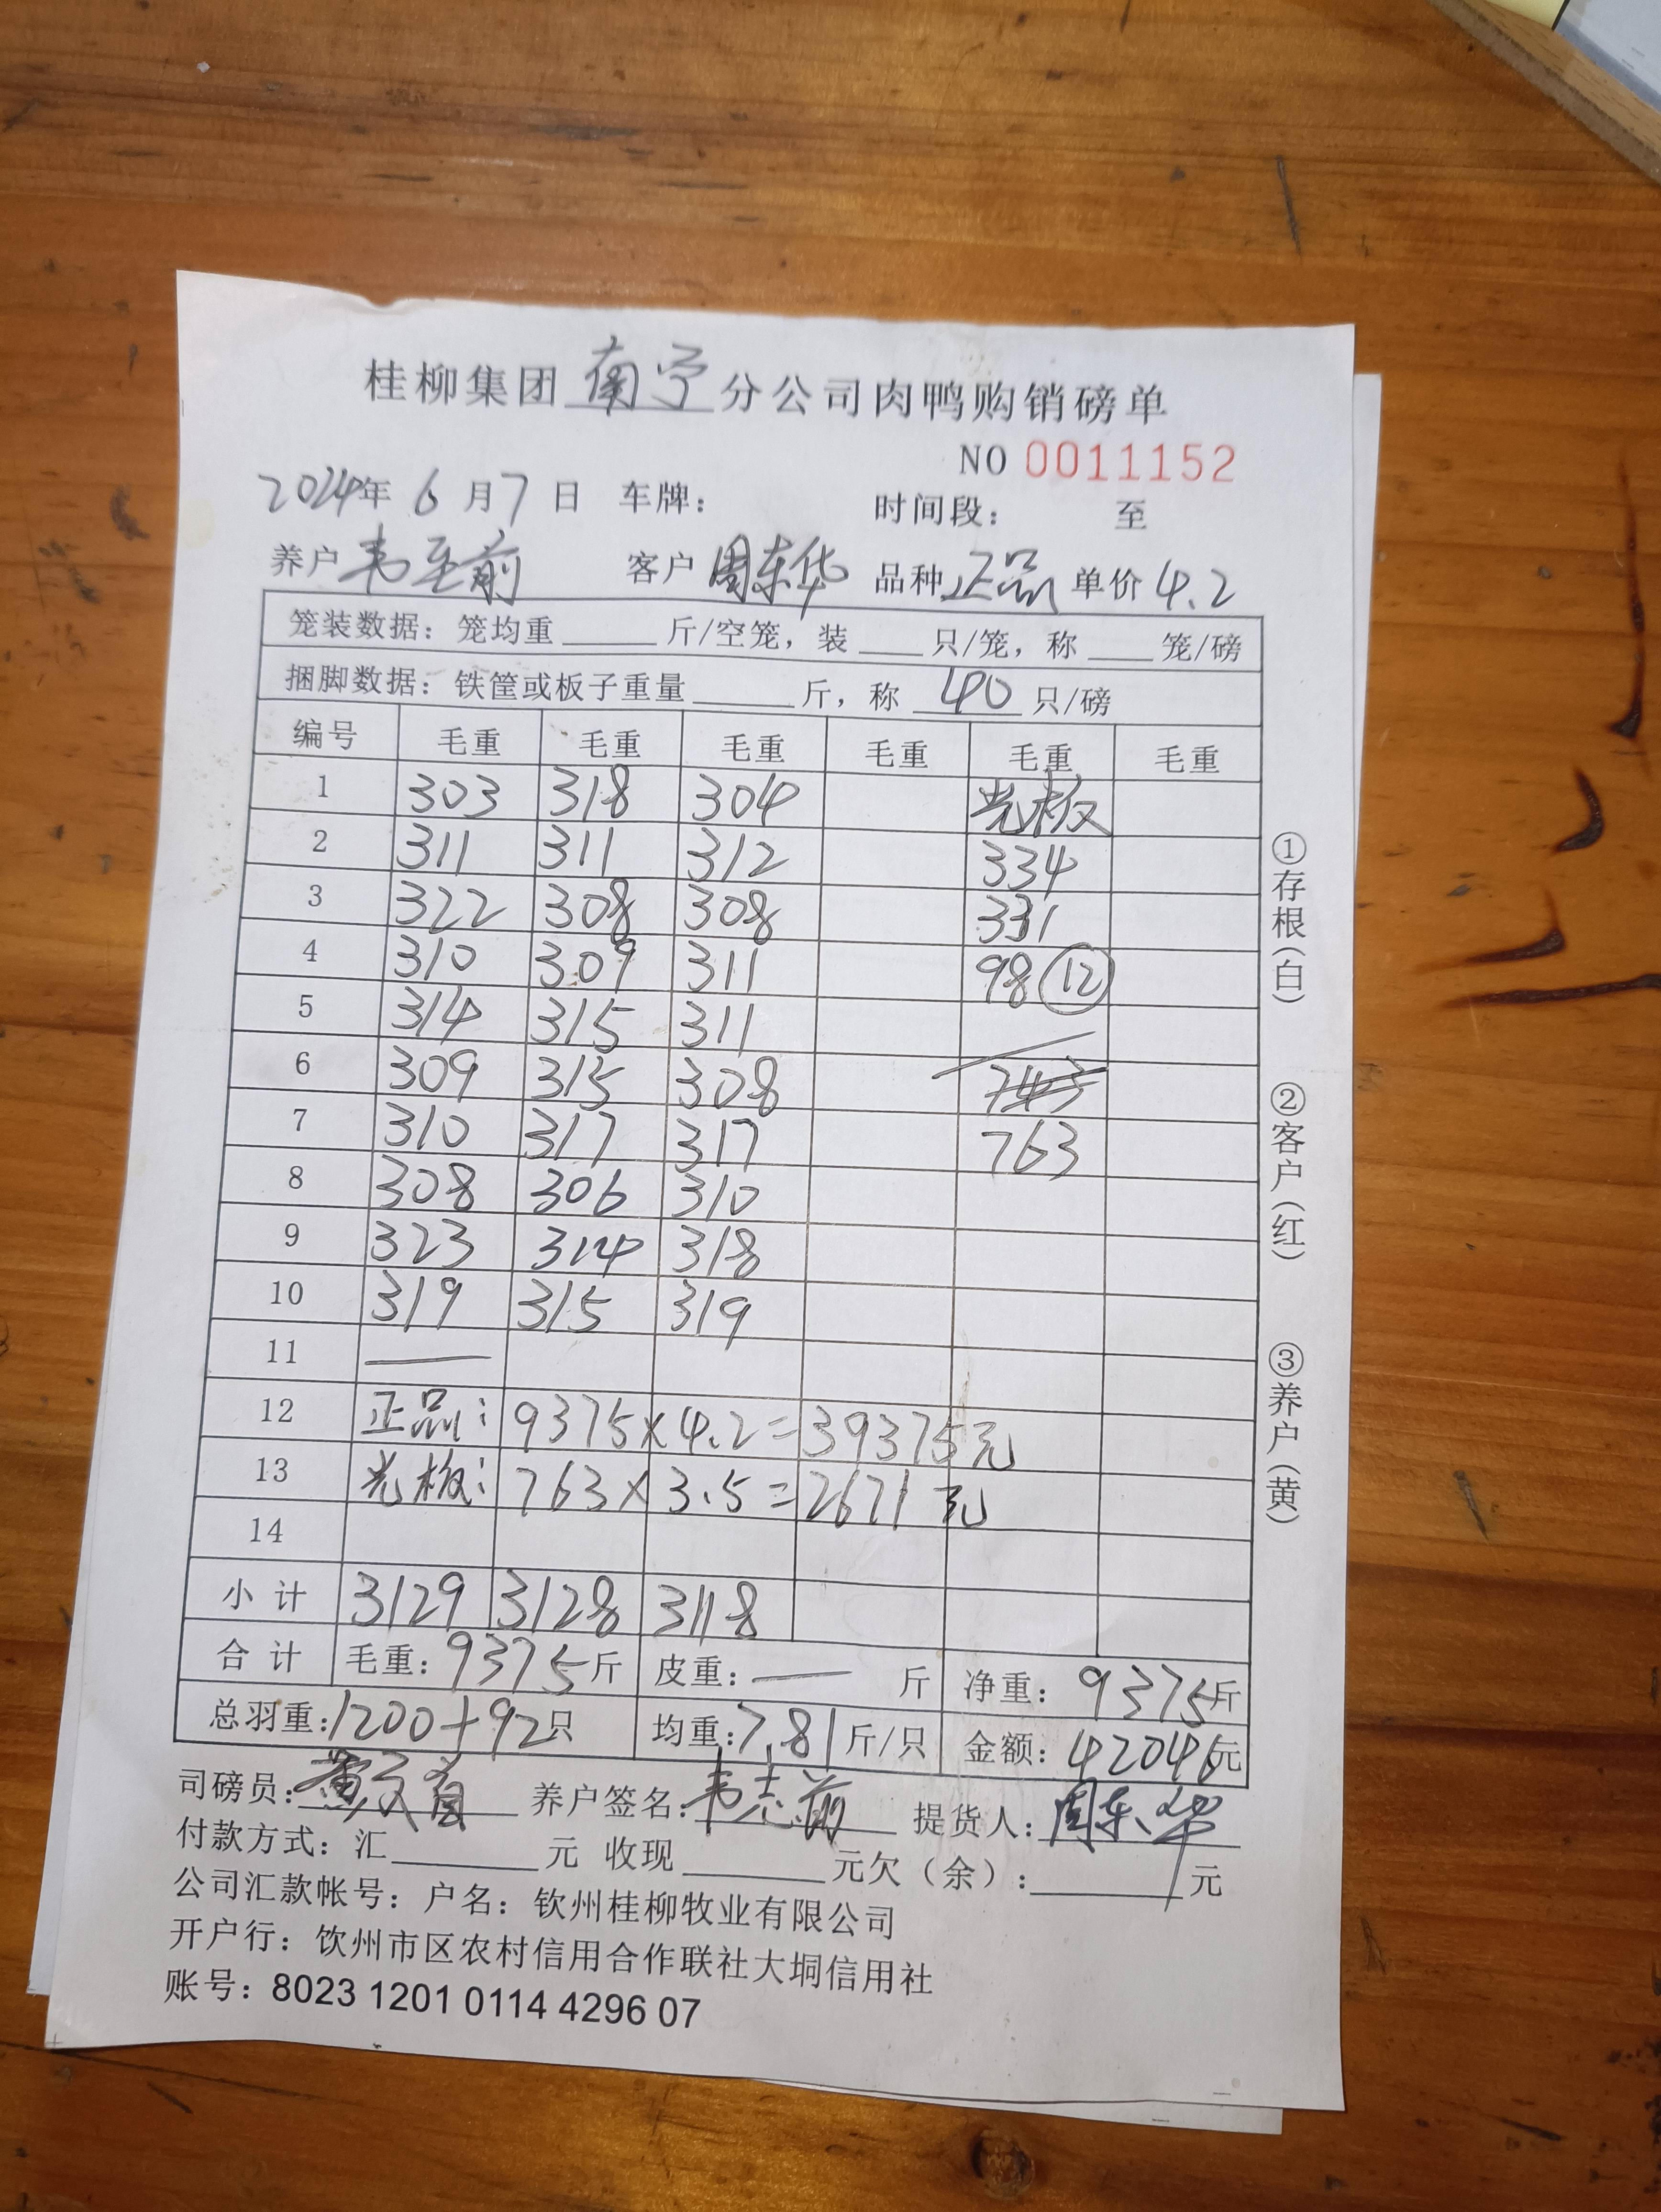 桂柳集团南宁分公司肉鸭购销磅单
NO 0011152
2024年 6月7日 车牌： 时间段： 至
养户 韦至前 客户 周东华 品种 正品 单价 4.2
笼装数据：笼均重 斤/空笼，装 只/笼，称 笼/磅
捆脚数据：铁筐或板子重量 斤，称 40 只/磅
编号 毛重 毛重 毛重 毛重 毛重 毛重
1 303 318 304 光板
2 311 311 312 334
3 322 308 308 331
4 310 309 311 98 ⑫
5 314 315 311
6 309 315 308 743
7 310 317 317 763
8 308 306 310
9 323 314 318
10 319 315 319
11 —
12 正品：9375×4.2=39375元
13 光板：763×3.5=2671元
14
小计 3129 3128 3118
合计 毛重：9375斤 皮重：— 斤 净重：9375斤
总羽重：1200+92只 均重：7.81斤/只 金额：42046元
司磅员： 养户签名：韦志前 提货人：周东华
付款方式：汇 元 收现 元欠（余）： 元
公司汇款帐号：户名：钦州桂柳牧业有限公司
开户行：饮州市区农村信用合作联社大垌信用社
账号：8023 1201 0114 4296 07
①存根（白）
②客户（红）
③养户（黄）